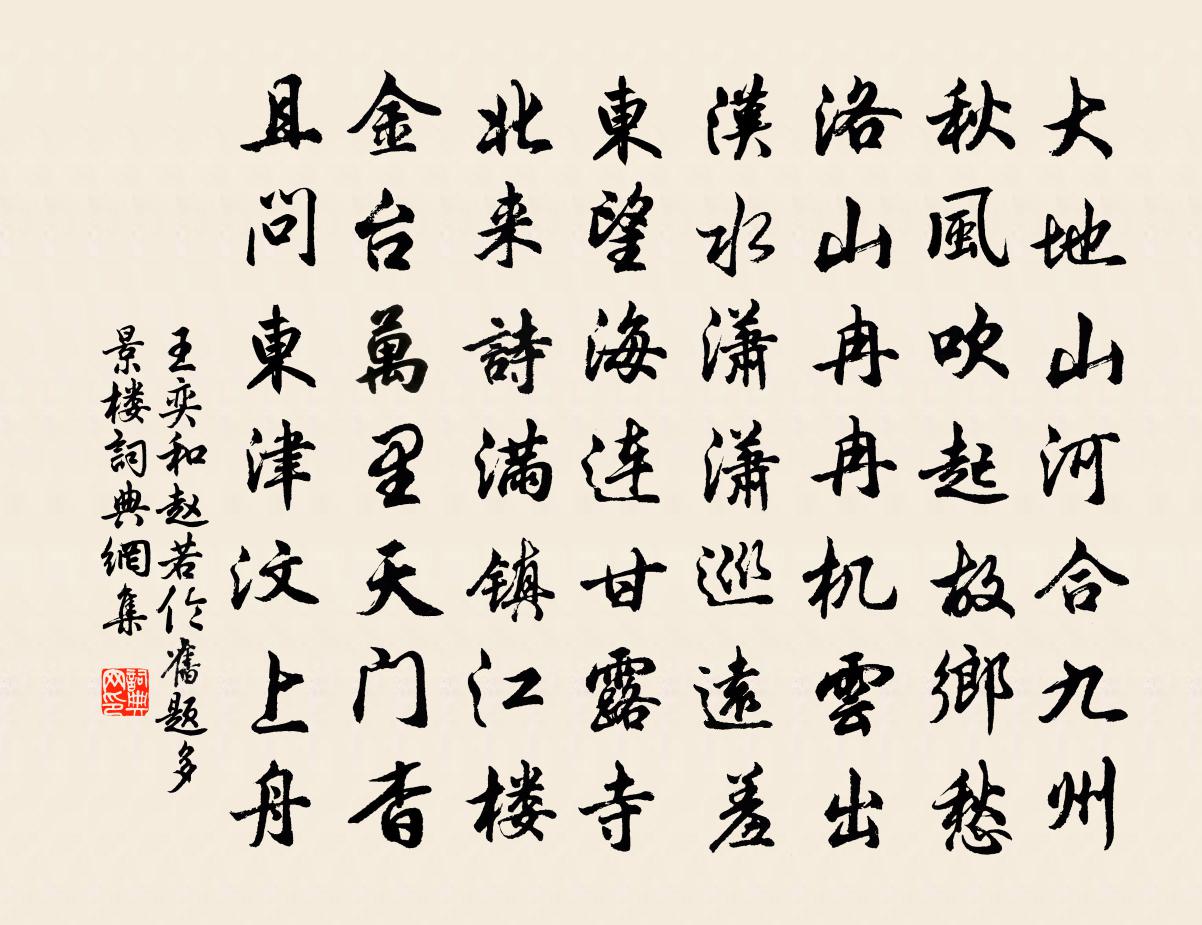 大地山河合九州
秋風吹起故鄉愁
洛山冉冉机雲出
漢水瀟瀟巡遠羞
東望海連甘露寺
北来詩满镇江楼
金台萬里天门杳
且问東津汶上舟
王奕和赵若舊题多
景楼詞典網集
詞典
网印